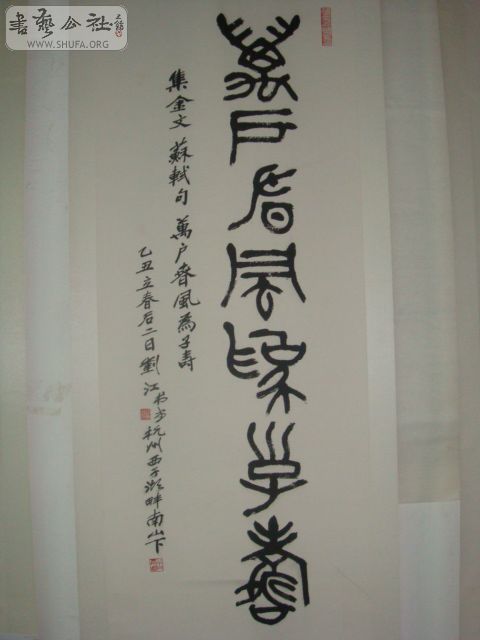 書藝公社
WWW.SHUFA.ORG
萬戶春風為子壽
集金文 蘇軾句 萬戶春風為子壽
乙丑立春后二日劉江書於杭州西子湖畔南山下